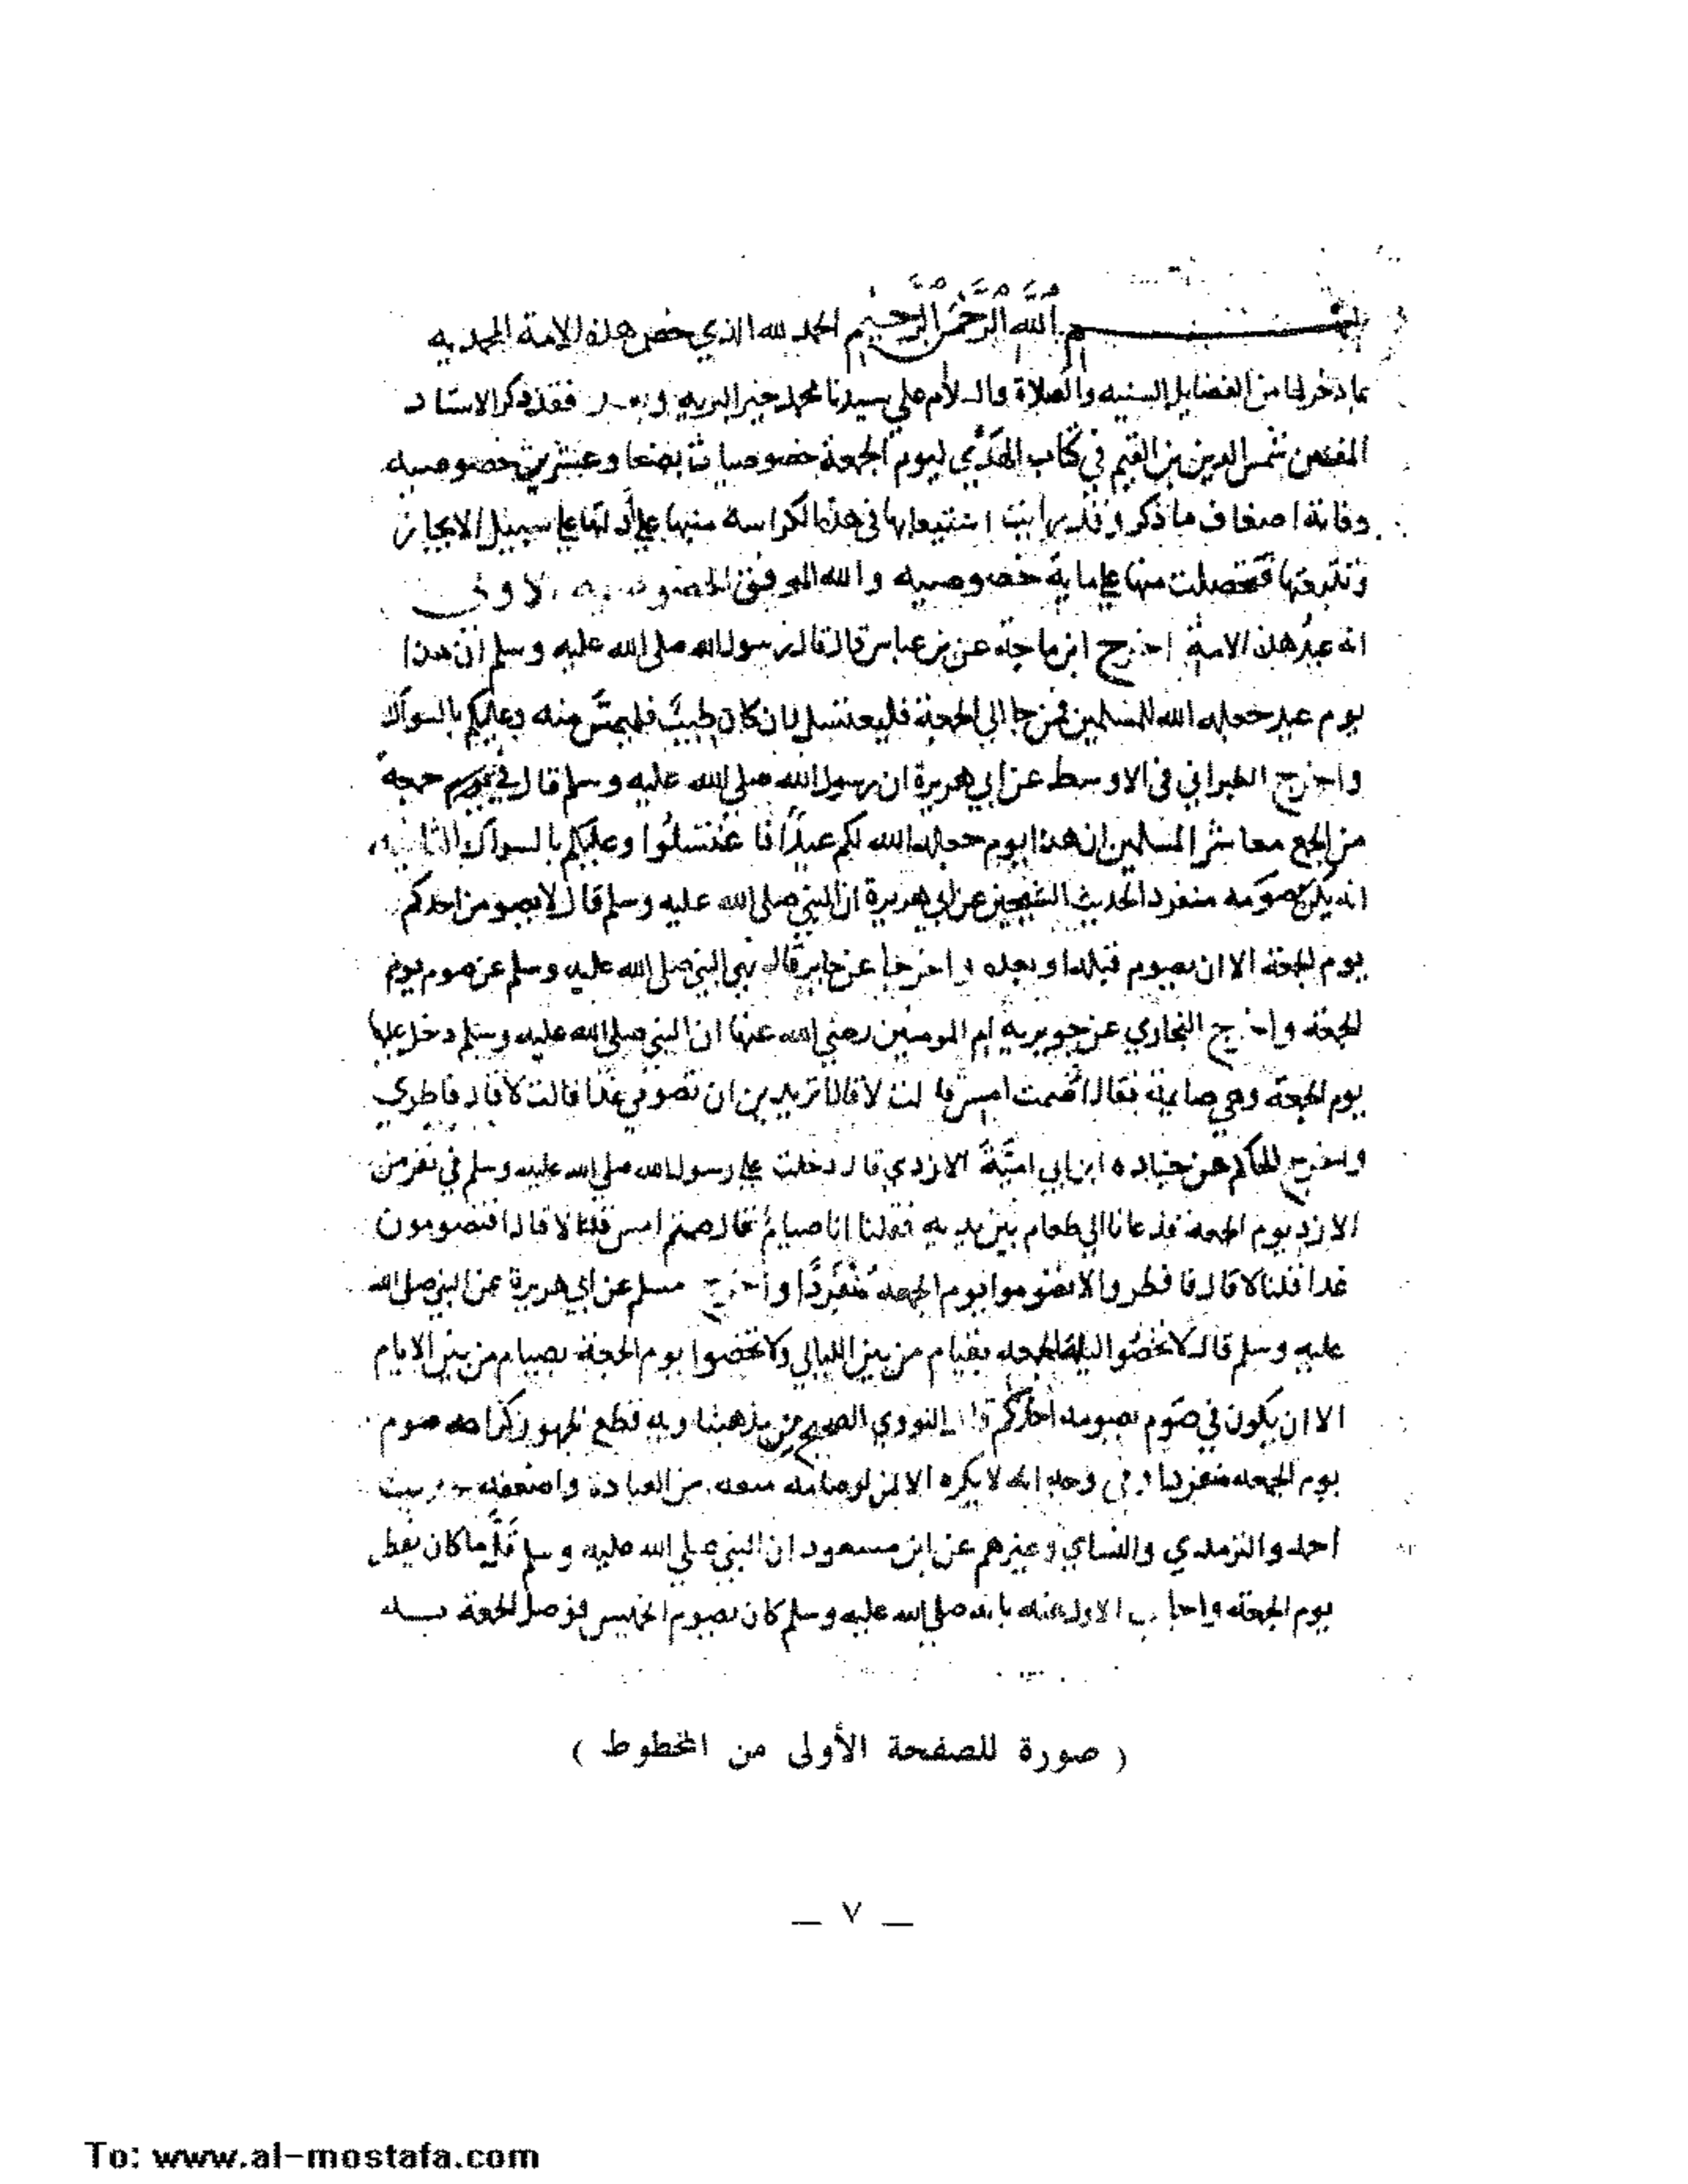 بسم الله الرحمن الرحيم الحمد لله الذي خص هذه الامة المحمديه
بما دخر لها من الفضايل السنيه والصلاة والسلام علي سيدنا محمد خير البريه وبعد فقد ذكر الاستاد
المفنن شمس الدين بن القيم في كتاب الهدي ليوم الجمعة خصوصيات بضعا وعشرين خصوصيه
وفاته اضعاف ما ذكر وقد رايت استيعابها في هذه الكراسة منبها علي ادلتها علي سبيل الايجاز
وتتبعتها فتحصلت منها علي ماية خصوصيه والله الموفق الخصوصيه الاولي
انه عيد هذه الامة اخرج ابن ماجة عن بن عباس قال قال رسول الله صلي الله عليه وسلم ان هذا
يوم عيد جعله الله للمسلمين فمن جا الي الجمعة فليغتسل وان كان طيب فليمس منه وعليكم بالسواك
واخرج الطبراني في الاوسط عن ابي هريرة ان رسول الله صلي الله عليه وسلم قال في جمعة
من الجمع معاشر المسلمين ان هذا يوم جعله الله لكم عيدًا فاغتسلوا وعليكم بالسواك الثانيه
انه يكره صومه منفردا لحديث الشيخين عن ابي هريرة ان النبي صلي الله عليه وسلم قال لا يصومن احدكم
يوم الجمعة الا ان يصوم قبله او بعده واخرجا عن جابر قال نهي النبي صلي الله عليه وسلم عن صوم يوم
الجمعة واخرج البخاري عن جويريه ام المومنين رضي الله عنها ان النبي صلي الله عليه وسلم دخل عليها
يوم الجمعة وهي صايمة فقال اصمت امس قالت لا قال اتريدين ان تصومي غدا قالت لا قال فافطري
واخرج الحاكم عن جناده ابن ابي اميّة الازدي قال دخلت علي رسول الله صلي الله عليه وسلم في نفر من
الازد يوم الجمعة فدعانا الي طعام بين يديه فقلنا انا صيام فقال صمتم امس قلنا لا قال افتصومون
غدا قلنا لا قال فافطروا لا تصوموا يوم الجمعة منفردًا واخرج مسلم عن ابي هريرة عن النبي صلي الله
عليه وسلم قال لا تخصوا ليلة الجمعه بقيام من بين الليالي ولا تخصوا يوم الجمعة بصيام من بين الايام
الا ان يكون في صوم يصومه احدكم قال النووي الصحيح من مذهبنا وبه قطع الجمهور كراهه صوم
يوم الجمعه منفردا وفي وجه انه لا يكره الا لمن لو صامه منعه من العبادة واضعفه لحديث
احمد والترمذي والنساي وغيرهم عن ابن مسعود ان النبي صلي الله عليه وسلم قلّما كان يفطر
يوم الجمعة واجاب الاول عنه بانه صلي الله عليه وسلم كان يصوم الخميس فوصل الجمعة به
( صورة للصفحة الأولى من المخطوط )
— ٧ —
To: www.al-mostafa.com